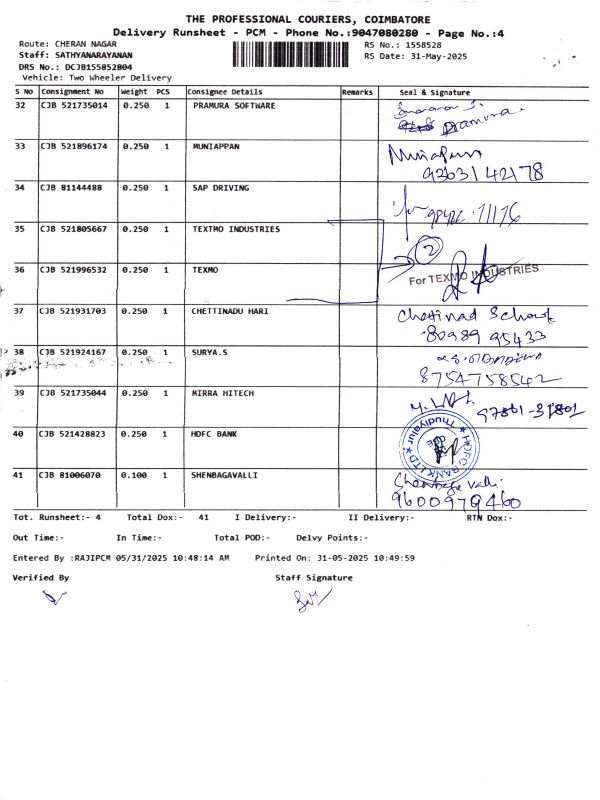 THE PROFESSIONAL COURIERS, COIMBATORE
Delivery Runsheet - PCM - Phone No.:9047080280 - Page No.:4
Route: CHERAN NAGAR
RS No.: 1558528
Staff: SATHYANARAYANAN
RS Date: 31-May-2025
DRS No.: DCJB155852804
Vehicle: Two Wheeler Delivery
S No Consignment No Weight PCS Consignee Details Remarks Seal & Signature
32 CJB 521735014 0.250 1 PRAMURA SOFTWARE
Pramura
33 CJB 521896174 0.250 1 MUNIAPPAN
9363142178
34 CJB 81144488 0.250 1 SAP DRIVING
35 CJB 521805667 0.250 1 TEXTMO INDUSTRIES
2
36 CJB 521996532 0.250 1 TEXMO
For TEXMO INDUSTRIES
37 CJB 521931703 0.250 1 CHETTINADU HARI
Chettinad School
80989 95433
38 CJB 521924167 0.250 1 SURYA.S
8754758542
39 CJB 521735044 0.250 1 MIRRA HITECH
97861-31801
40 CJB 521428823 0.250 1 HDFC BANK
HDFC BANK LTD ★ Thudiyalur ★
41 CJB 81006070 0.100 1 SHENBAGAVALLI
9600979460
Tot. Runsheet:- 4 Total Dox:- 41 I Delivery:- II Delivery:- RTN Dox:-
Out Time:- In Time:- Total POD:- Delvy Points:-
Entered By :RAJIPCM 05/31/2025 10:48:14 AM Printed On: 31-05-2025 10:49:59
Verified By Staff Signature